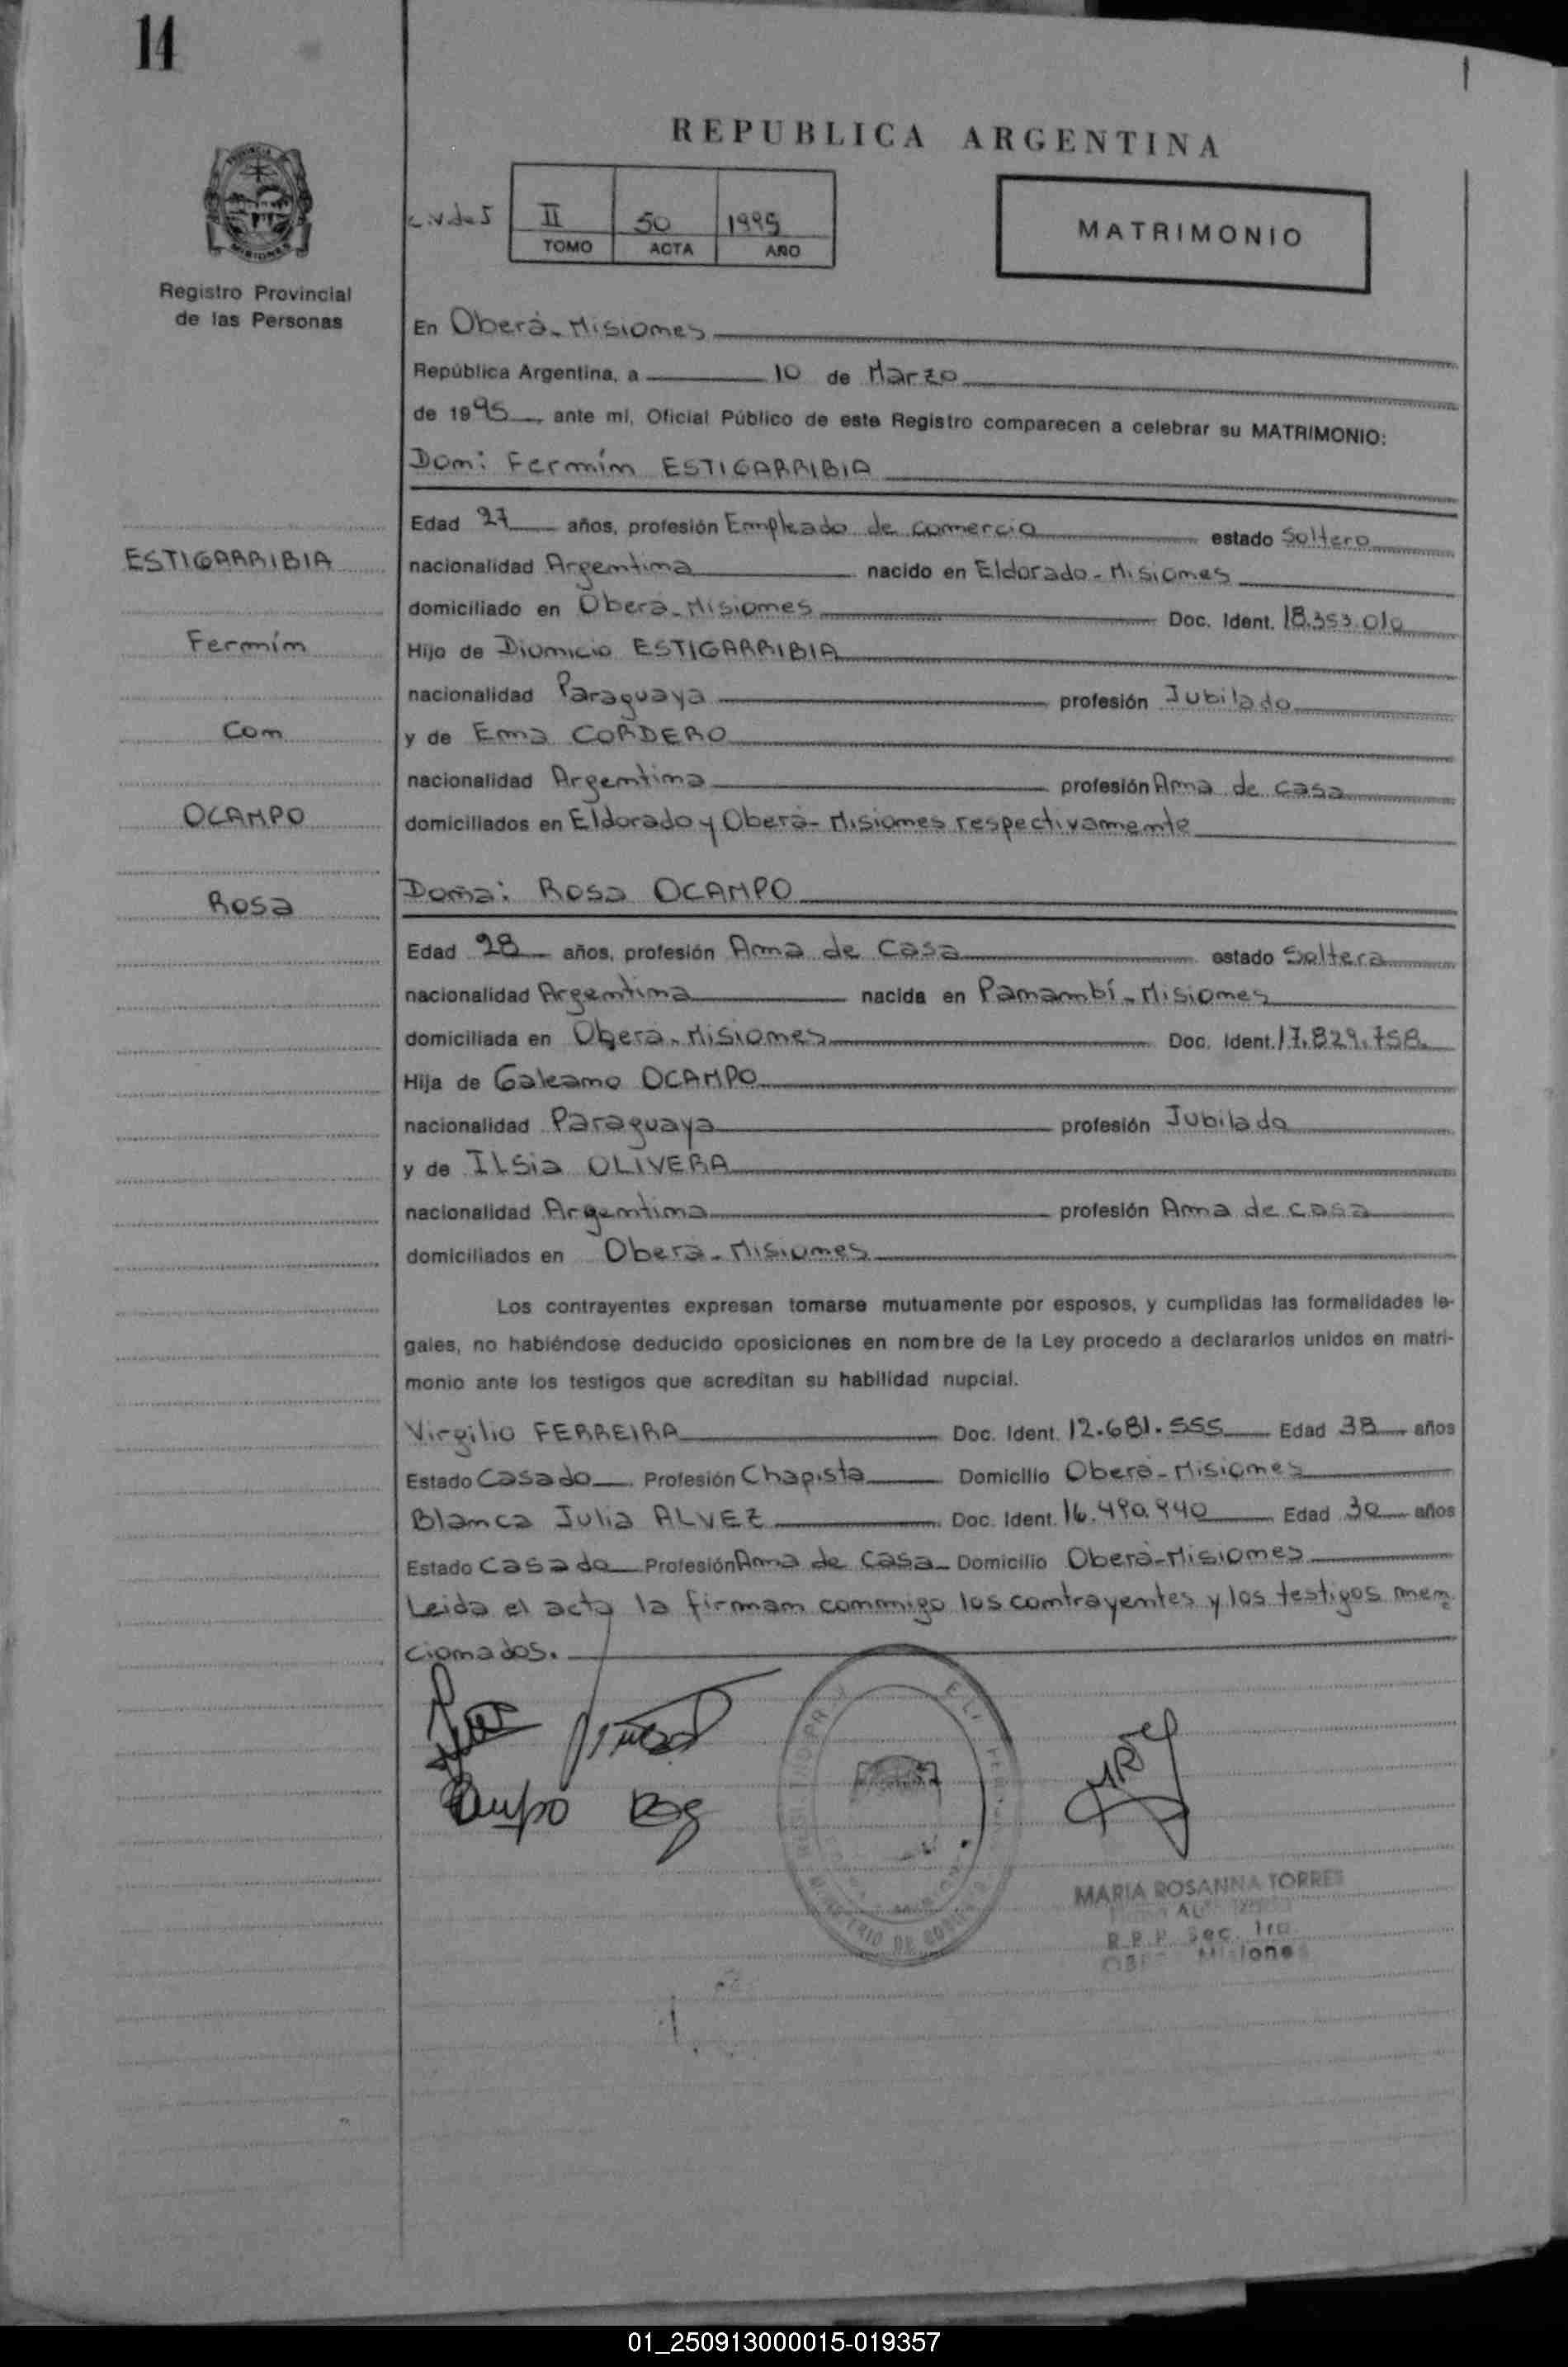 14
REPUBLICA ARGENTINA
II 50 1995
TOMO ACTA AÑO
MATRIMONIO
Registro Provincial
de las Personas
En Oberá-Misiones
República Argentina, a 10 de Marzo
de 1995, ante mí, Oficial Público de este Registro comparecen a celebrar su MATRIMONIO:
Don: Fermín ESTIGARRIBIA
Edad 27 años, profesión Empleado de comercio estado Soltero
ESTIGARRIBIA
nacionalidad Argentina nacido en Eldorado-Misiones
domiciliado en Oberá-Misiones Doc. Ident. 18.353.010
Fermín
Hijo de Dionicio ESTIGARRIBIA
nacionalidad Paraguaya profesión Jubilado
Con
y de Ema CORDERO
nacionalidad Argentina profesión Ama de casa
OCAMPO
domiciliados en Eldorado y Oberá-Misiones respectivamente
Rosa
Doña: Rosa OCAMPO
Edad 28 años, profesión Ama de Casa estado Soltera
nacionalidad Argentina nacida en Panambí-Misiones
domiciliada en Oberá-Misiones Doc. Ident. 17.829.758.
Hija de Galeano OCAMPO
nacionalidad Paraguaya profesión Jubilado
y de Ilsia OLIVERA
nacionalidad Argentina profesión Ama de casa
domiciliados en Oberá-Misiones
Los contrayentes expresan tomarse mutuamente por esposos, y cumplidas las formalidades le-
gales, no habiéndose deducido oposiciones en nombre de la Ley procedo a declararlos unidos en matri-
monio ante los testigos que acreditan su habilidad nupcial.
Virgilio FERREIRA Doc. Ident. 12.681.555 Edad 38 años
Estado Casado Profesión Chapista Domicilio Oberá-Misiones
Blanca Julia ALVEZ Doc. Ident. 16.490.940 Edad 30 años
Estado Casada Profesión Ama de Casa Domicilio Oberá-Misiones
Leida el acta la firman conmigo los contrayentes y los testigos men-
cionados.
MARIA ROSANNA TORRES
R.P.P. Sec. 1ra
Misiones
01_250913000015-019357